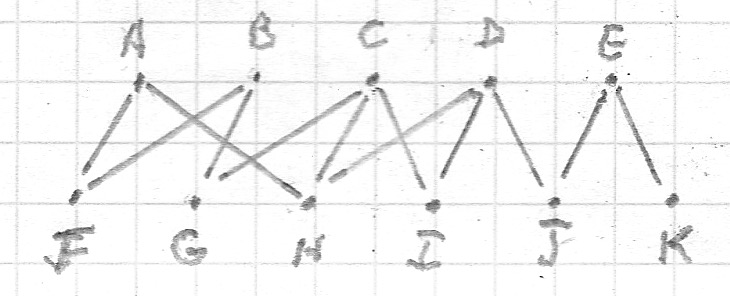 A B C D E
F G H I J K